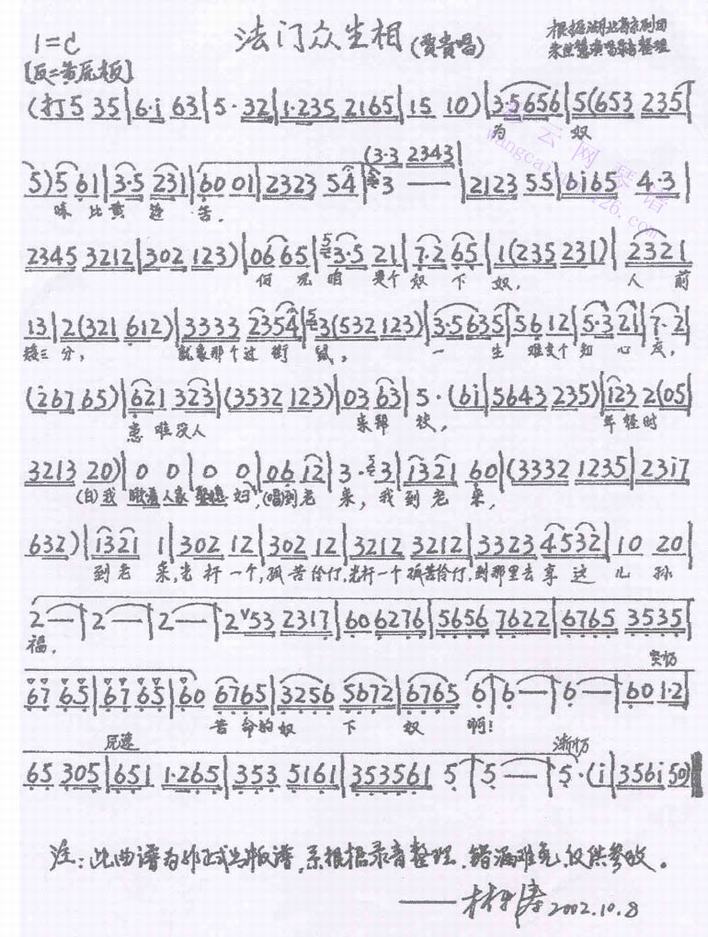 法门众生相(贾贵唱)
根据湖北省京剧团
朱世慧演唱录音整理
1=C
[反二黄原板]
(打5 35|6·i 63|5·32|1·235 2165|15 10)|3·5656|5(653 235|
为 奴
(3·3 2343|
5)5 61|3·5 231|60 01|2323 54|3 — —|2123 55|6i65 4·3|
味 比黄连 苦,
2345 3212|302 123)|06 65|3·5 21|7·2 65|1(235 231)|2321
变个奴 下 奴, 人 前
13|2(321 612)|3333 2354|3(532 123)|3·5635|56 12|5·3 21|7·2|
矮三 分, 就象那个过街 鼠, 一 生 难交个知 心 友,
(267 65)|621 323|(3532 123)|03 63|5·(6i|5643 235)|i23 2(05|
患难没人 来帮 扶, 年轻时
3213 20)|0 0|0 0|06 i2|3·3|i321 60|(3332 1235|23i7
(白)我 (唱)到老 来, 我到老 来,
632)|i321 1|302 12|302 12|3212 3212|3323 4532|10 20|
到老 来,光杆一个,孤苦伶仃,光杆一个孤苦伶仃,到那里去享这 儿 孙
2 —|2 —|2 —|2ᵛ53 2317|606276|5656 7622|6765 3535|
福,
67 65|67 65|60 6765|3256 5672|6765 6|6 —|6 —|601·2|
苦 命的奴 下 奴 啊!
原速 渐切
65 305|651 1·265|353 5161|353561 5|5 —|5·(i|356i 50)‖
注:此曲谱为非正式出版谱,系根据录音整理,错漏难免,仅供参考。
2002.10.8